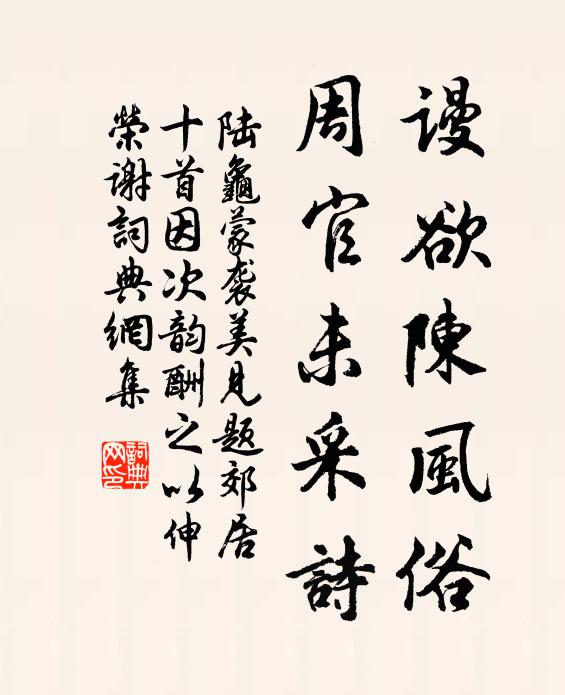 謾欲陳風俗
周官未采詩
陆龜蒙袭美見題郊居
十首因次韵酬之以伸
榮谢詞典網集
詞典
网印